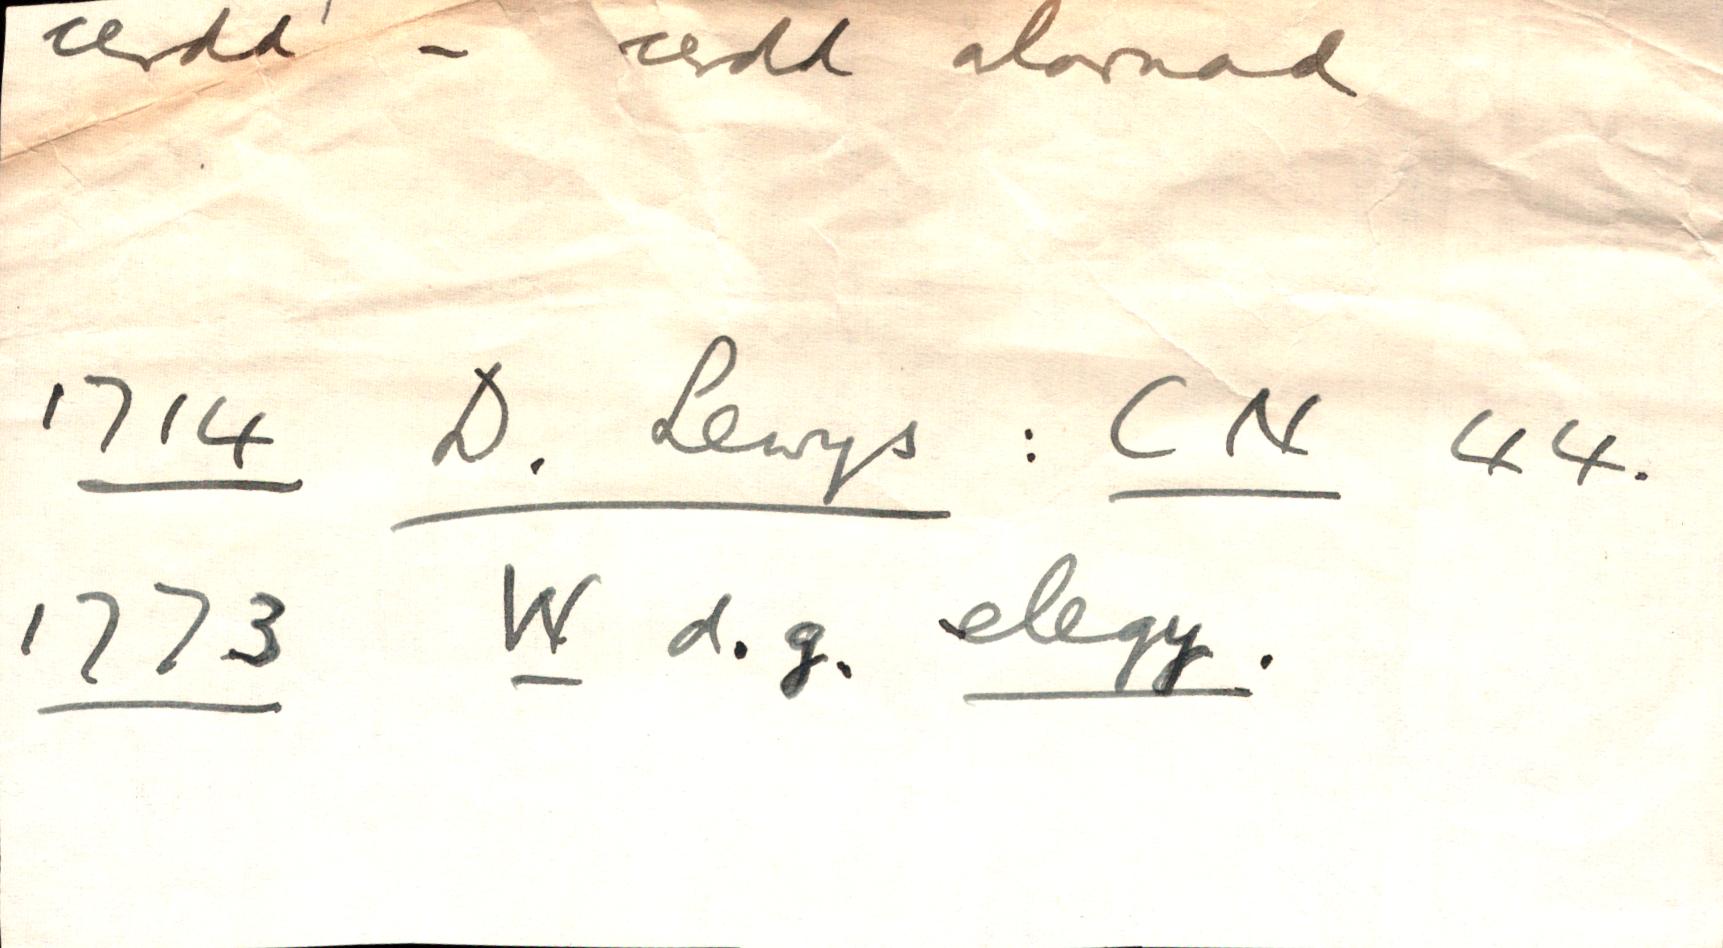 cerdd - cerdd alarnad
1714 D. Lewys : CN 44.
1773 W d.g. elegy.